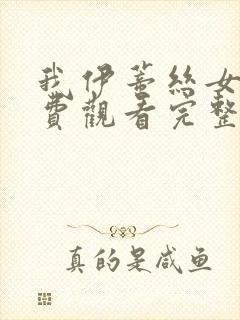 我伊蒂絲女
費觀看完整
真的是咸鱼